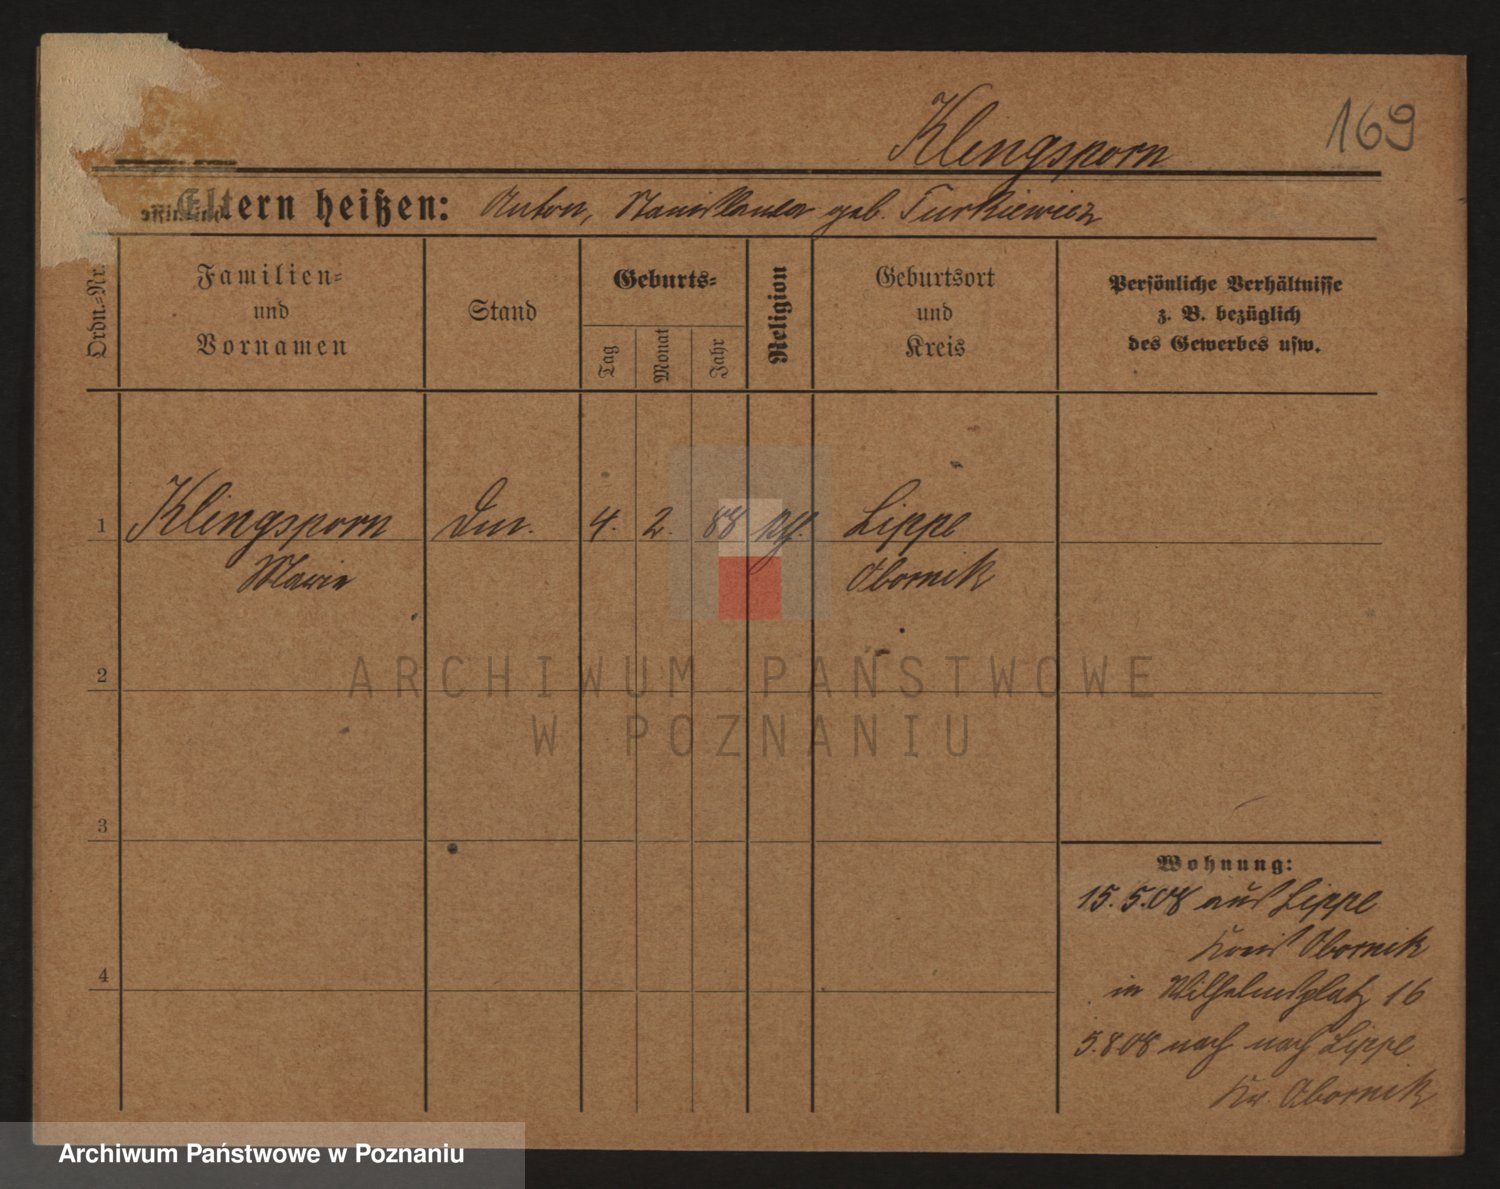 169
Klingsporn
Eltern heißen: Anton, Stanislawa geb. Turkiewicz
Ordn.-Nr.
Familien- und Vornamen
Stand
Geburts-
Tag
Monat
Jahr
Religion
Geburtsort und Kreis
Persönliche Verhältnisse
z. B. bezüglich
des Gewerbes usw.
1 Klingsporn 4. 2. 88 Lippe
Marie Obornik
2
3
4
Wohnung:
15.5.08 aus Lippe
Kreis Obornik
in Wilhelmsplatz 16
5.8.08 nach nach Lippe
Kr. Obornik
ARCHIWUM PAŃSTWOWE
W POZNANIU
Archiwum Państwowe w Poznaniu